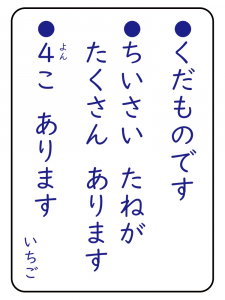 ●くだものです
●ちいさい たねが
たくさん あります
●4こ あります
よん
いちご